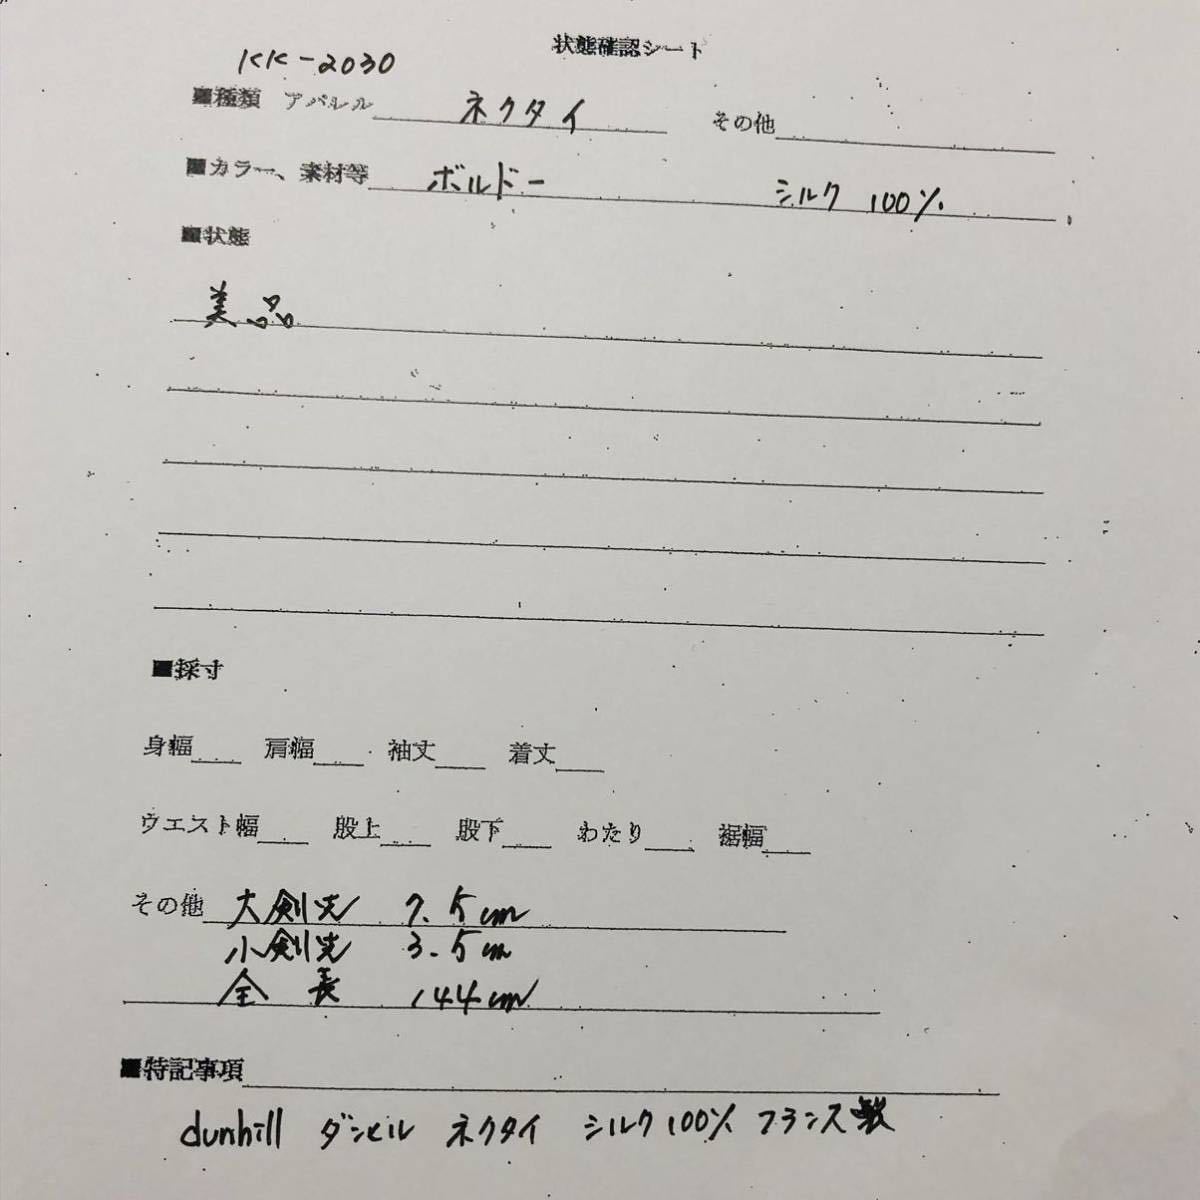 状態確認シート
KK-2030
■種類 アパレル ネクタイ その他
■カラー、素材等 ボルドー シルク 100%
■状態
美品
■採寸
身幅 肩幅 袖丈 着丈
ウエスト幅 股上 股下 わたり 裾幅
その他 大剣先 7.5cm
小剣先 3.5cm
全長 144cm
■特記事項
dunhill ダンヒル ネクタイ シルク100% フランス製